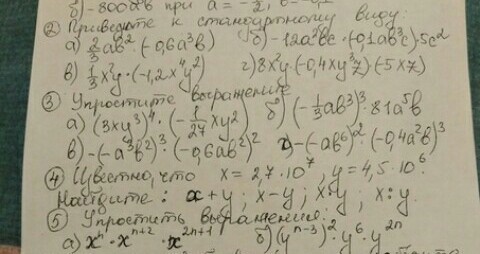 б) -800a²b при a = -1/2, b =
② Приведите к стандартному виду:
а) 2/3 ab² · (-0,6a³b) б) -12a²bc · (-0,1ab³c) · 5c²
в) 1/3 x²y · (-1,2x⁴y²) г) 8x²y · (-0,4xy³z) · (-5xz)
③ Упростите выражение
а) (3xy³)⁴ · (-1/27 xy²) б) (-1/3 ab³)³ · 81a⁵b
в) -(-a³b²)³ · (-0,6ab²)² г) -(-ab⁶)² · (-0,4a²b)³
④ Известно, что x = 2,7 · 10⁷, y = 4,5 · 10⁶.
Найдите: x+y; x-y; x·y; x:y.
⑤ Упростить выражения:
а) xⁿ · xⁿ⁺² · x²ⁿ⁺¹ б) (yⁿ⁻³)² · y⁶ · y²ⁿ